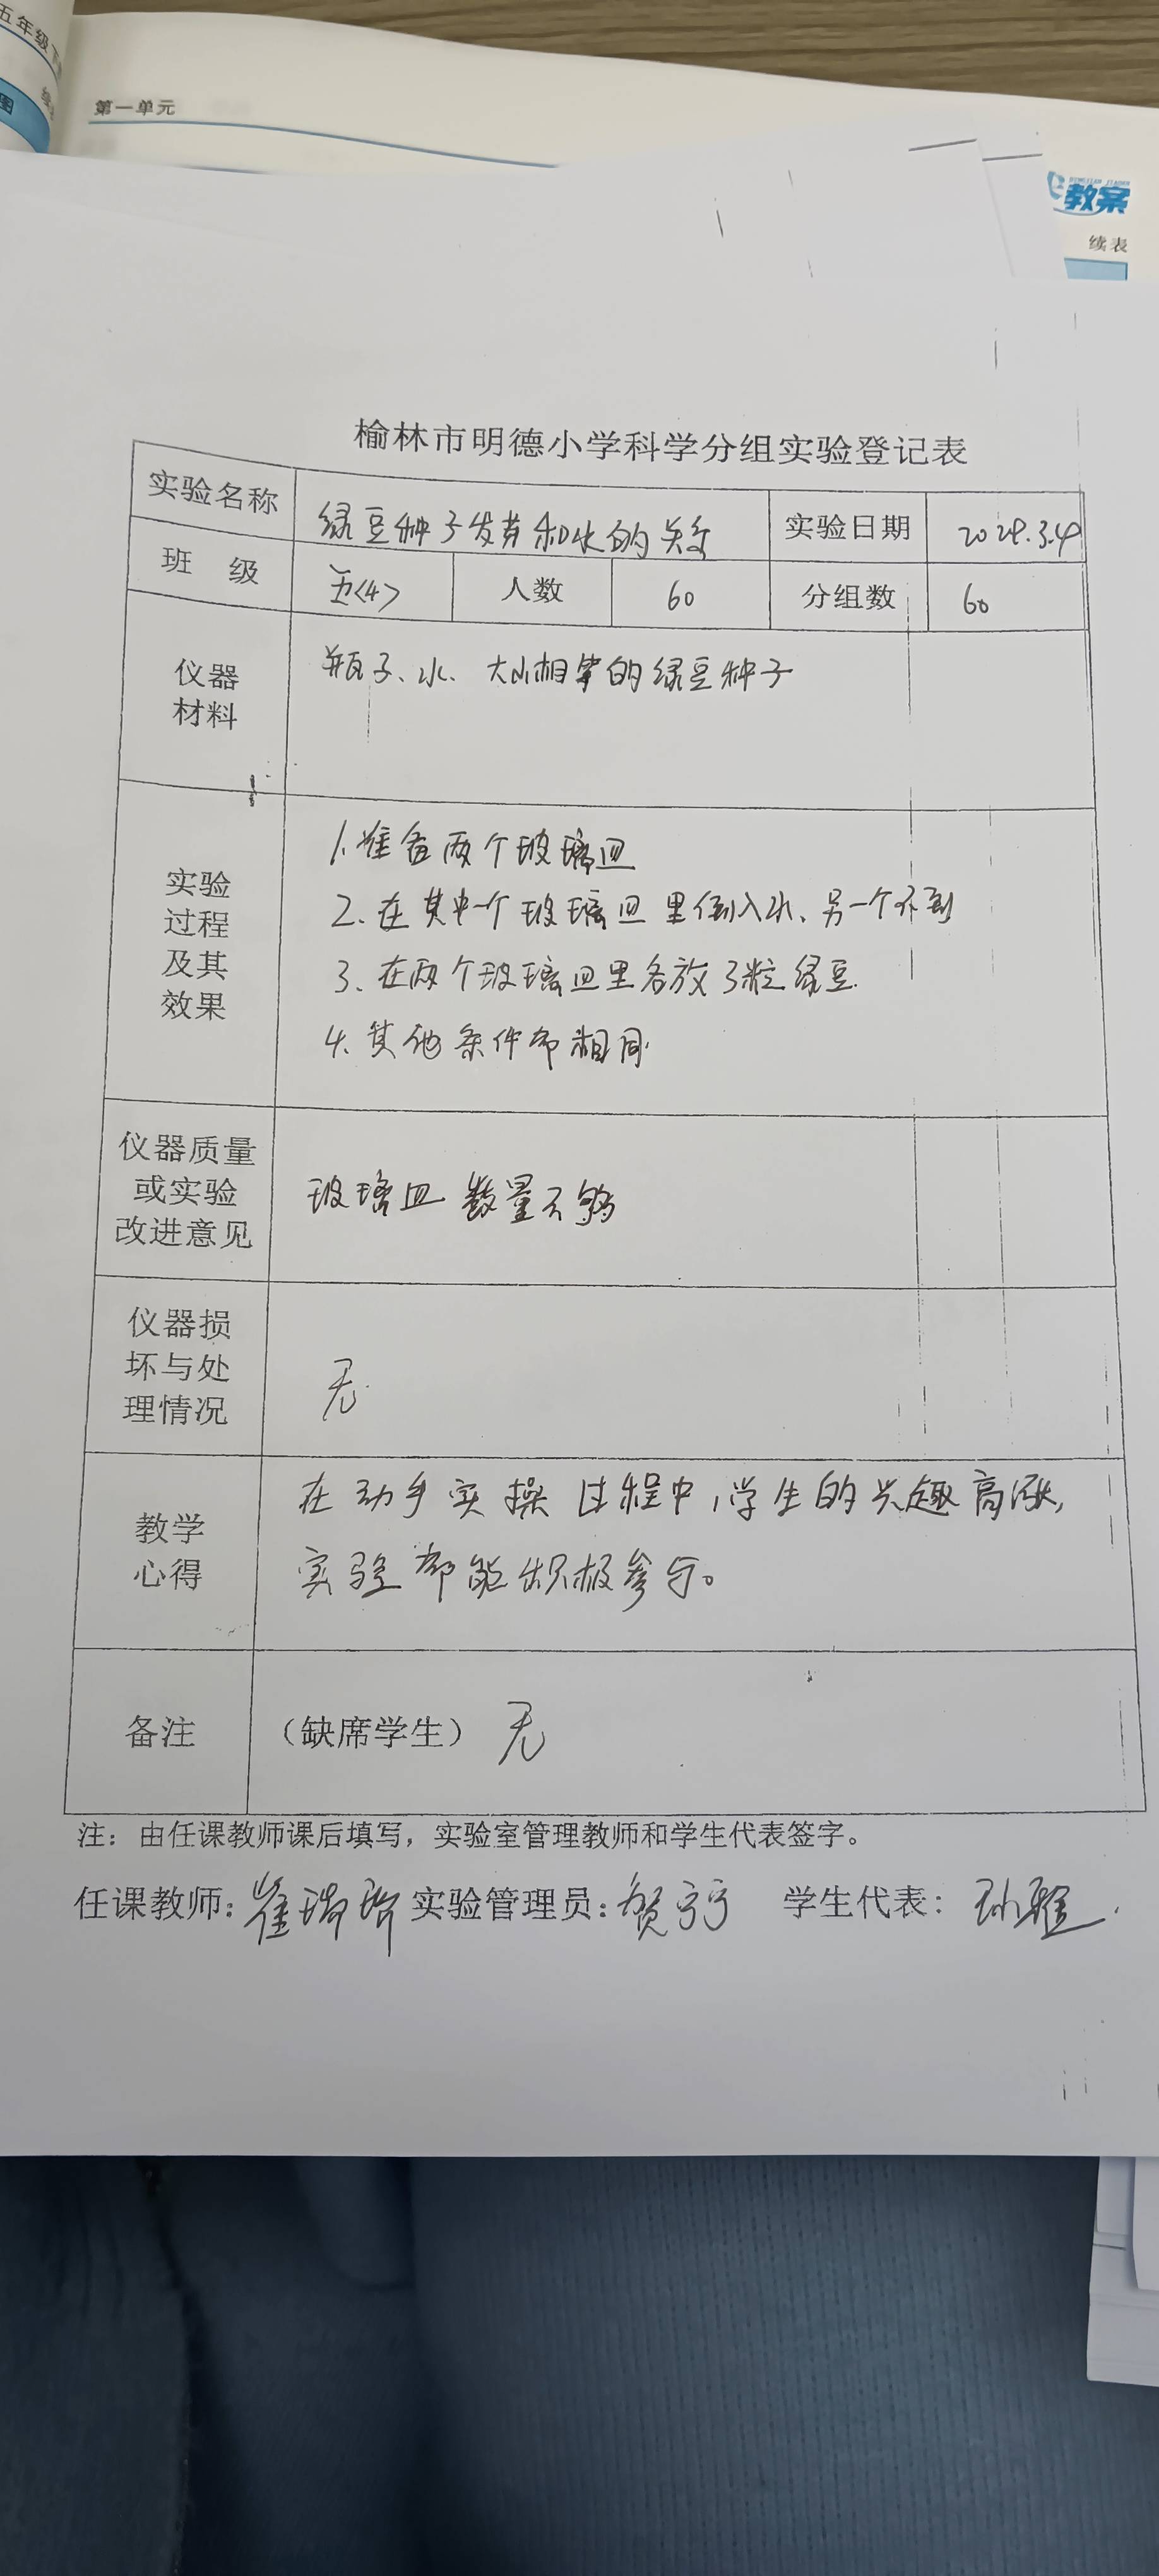 五年级下
第一单元
图
教案
续表
榆林市明德小学科学分组实验登记表
实验名称 绿豆种子发芽和水的关系 实验日期
班 级 五<4> 人数 60 分组数 60
仪器 瓶子、水、大小相等的绿豆种子
材料
实验
过程
及其
效果
1.准备两个玻璃皿
2.在其中一个玻璃皿里倒入水、另一个不到
3、在两个玻璃皿里各放3粒绿豆.
4.其他条件都相同.
仪器质量
或实验
改进意见
玻璃皿数量不够
仪器损
坏与处
理情况
无.
教学
心得
在动手实操过程中,学生的兴趣高涨,
实验都能积极参与。
备注 (缺席学生) 无
注:由任课教师课后填写,实验室管理教师和学生代表签字。
任课教师: 实验管理员: 学生代表: